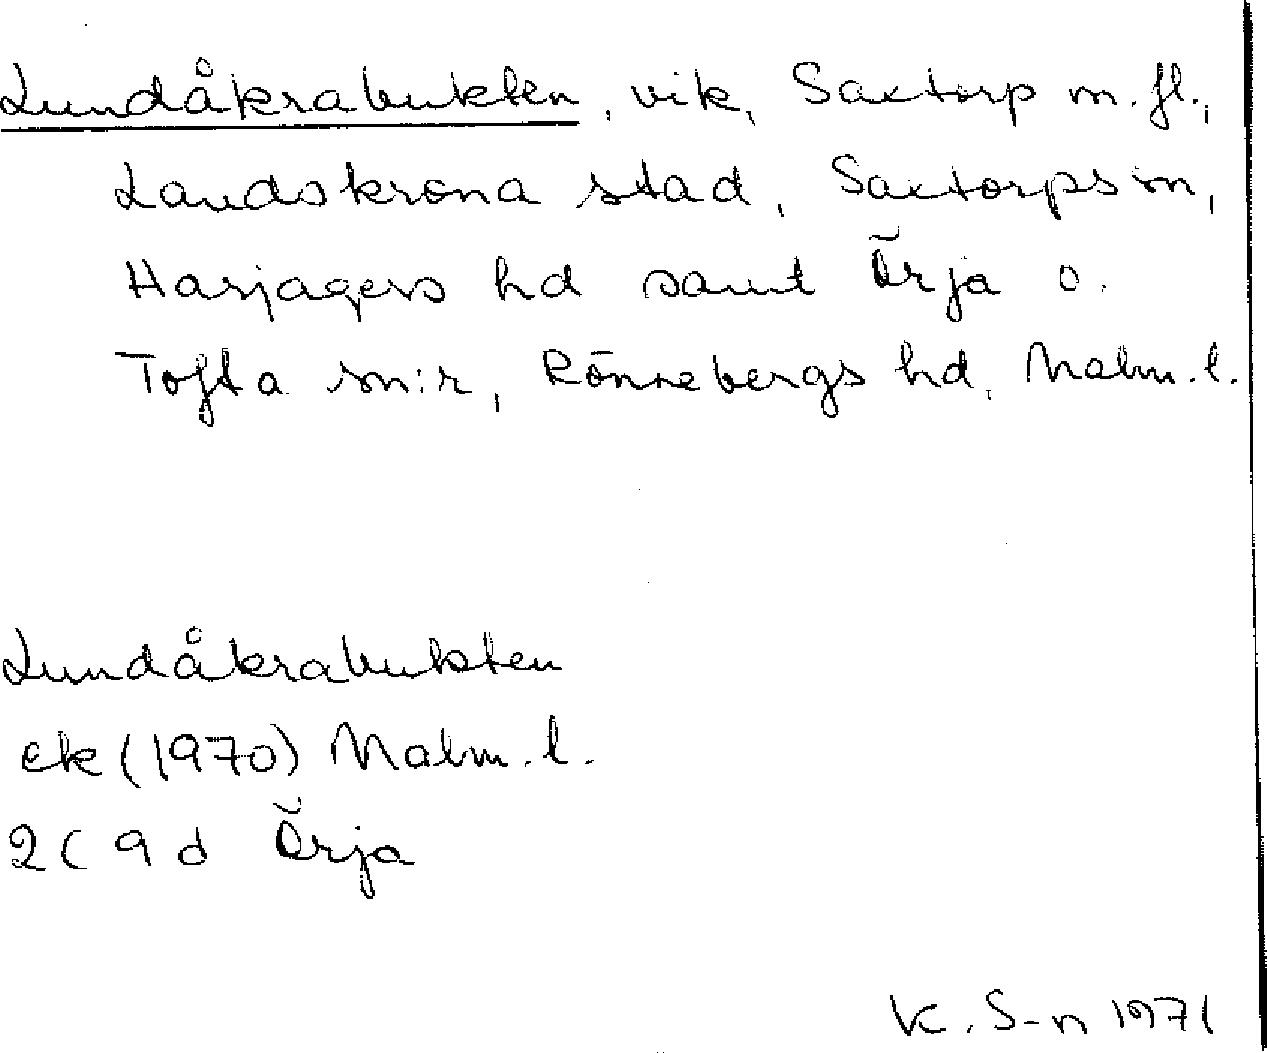 Lundåkrabukten, vik, Saxtorp m.fl.,
Landskrona stad, Saxtorps sn,
Harjagers hd samt Örja o.
Tofta sn:r, Rönnebergs hd, Malm.l.
Lundåkrabukten
ek (1970) Malm.l.
2C 9d Örja
K. S-n 1971